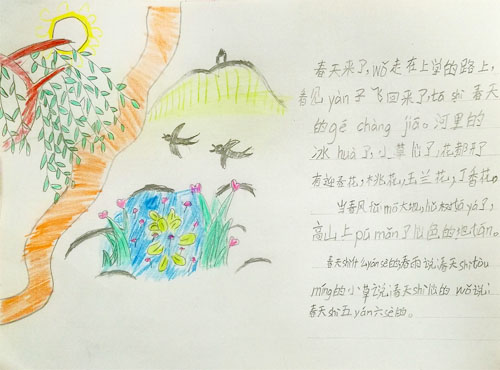 春天来了,wǒ走在上学的路上,
看见yàn子飞回来了,tā shì春天
的gē chàng jiā。河里的
冰huà了,小草lǜ了,花都开了
有迎春花,桃花,玉兰花,丁香花。
当春风 大地,
高山上pū mǎn了lǜ色的地tǎn。
春天shì yán sè的春雨说春天shì
míng的小草说春天shì lǜ的 wǒ说
春天shì五yán六sè的。